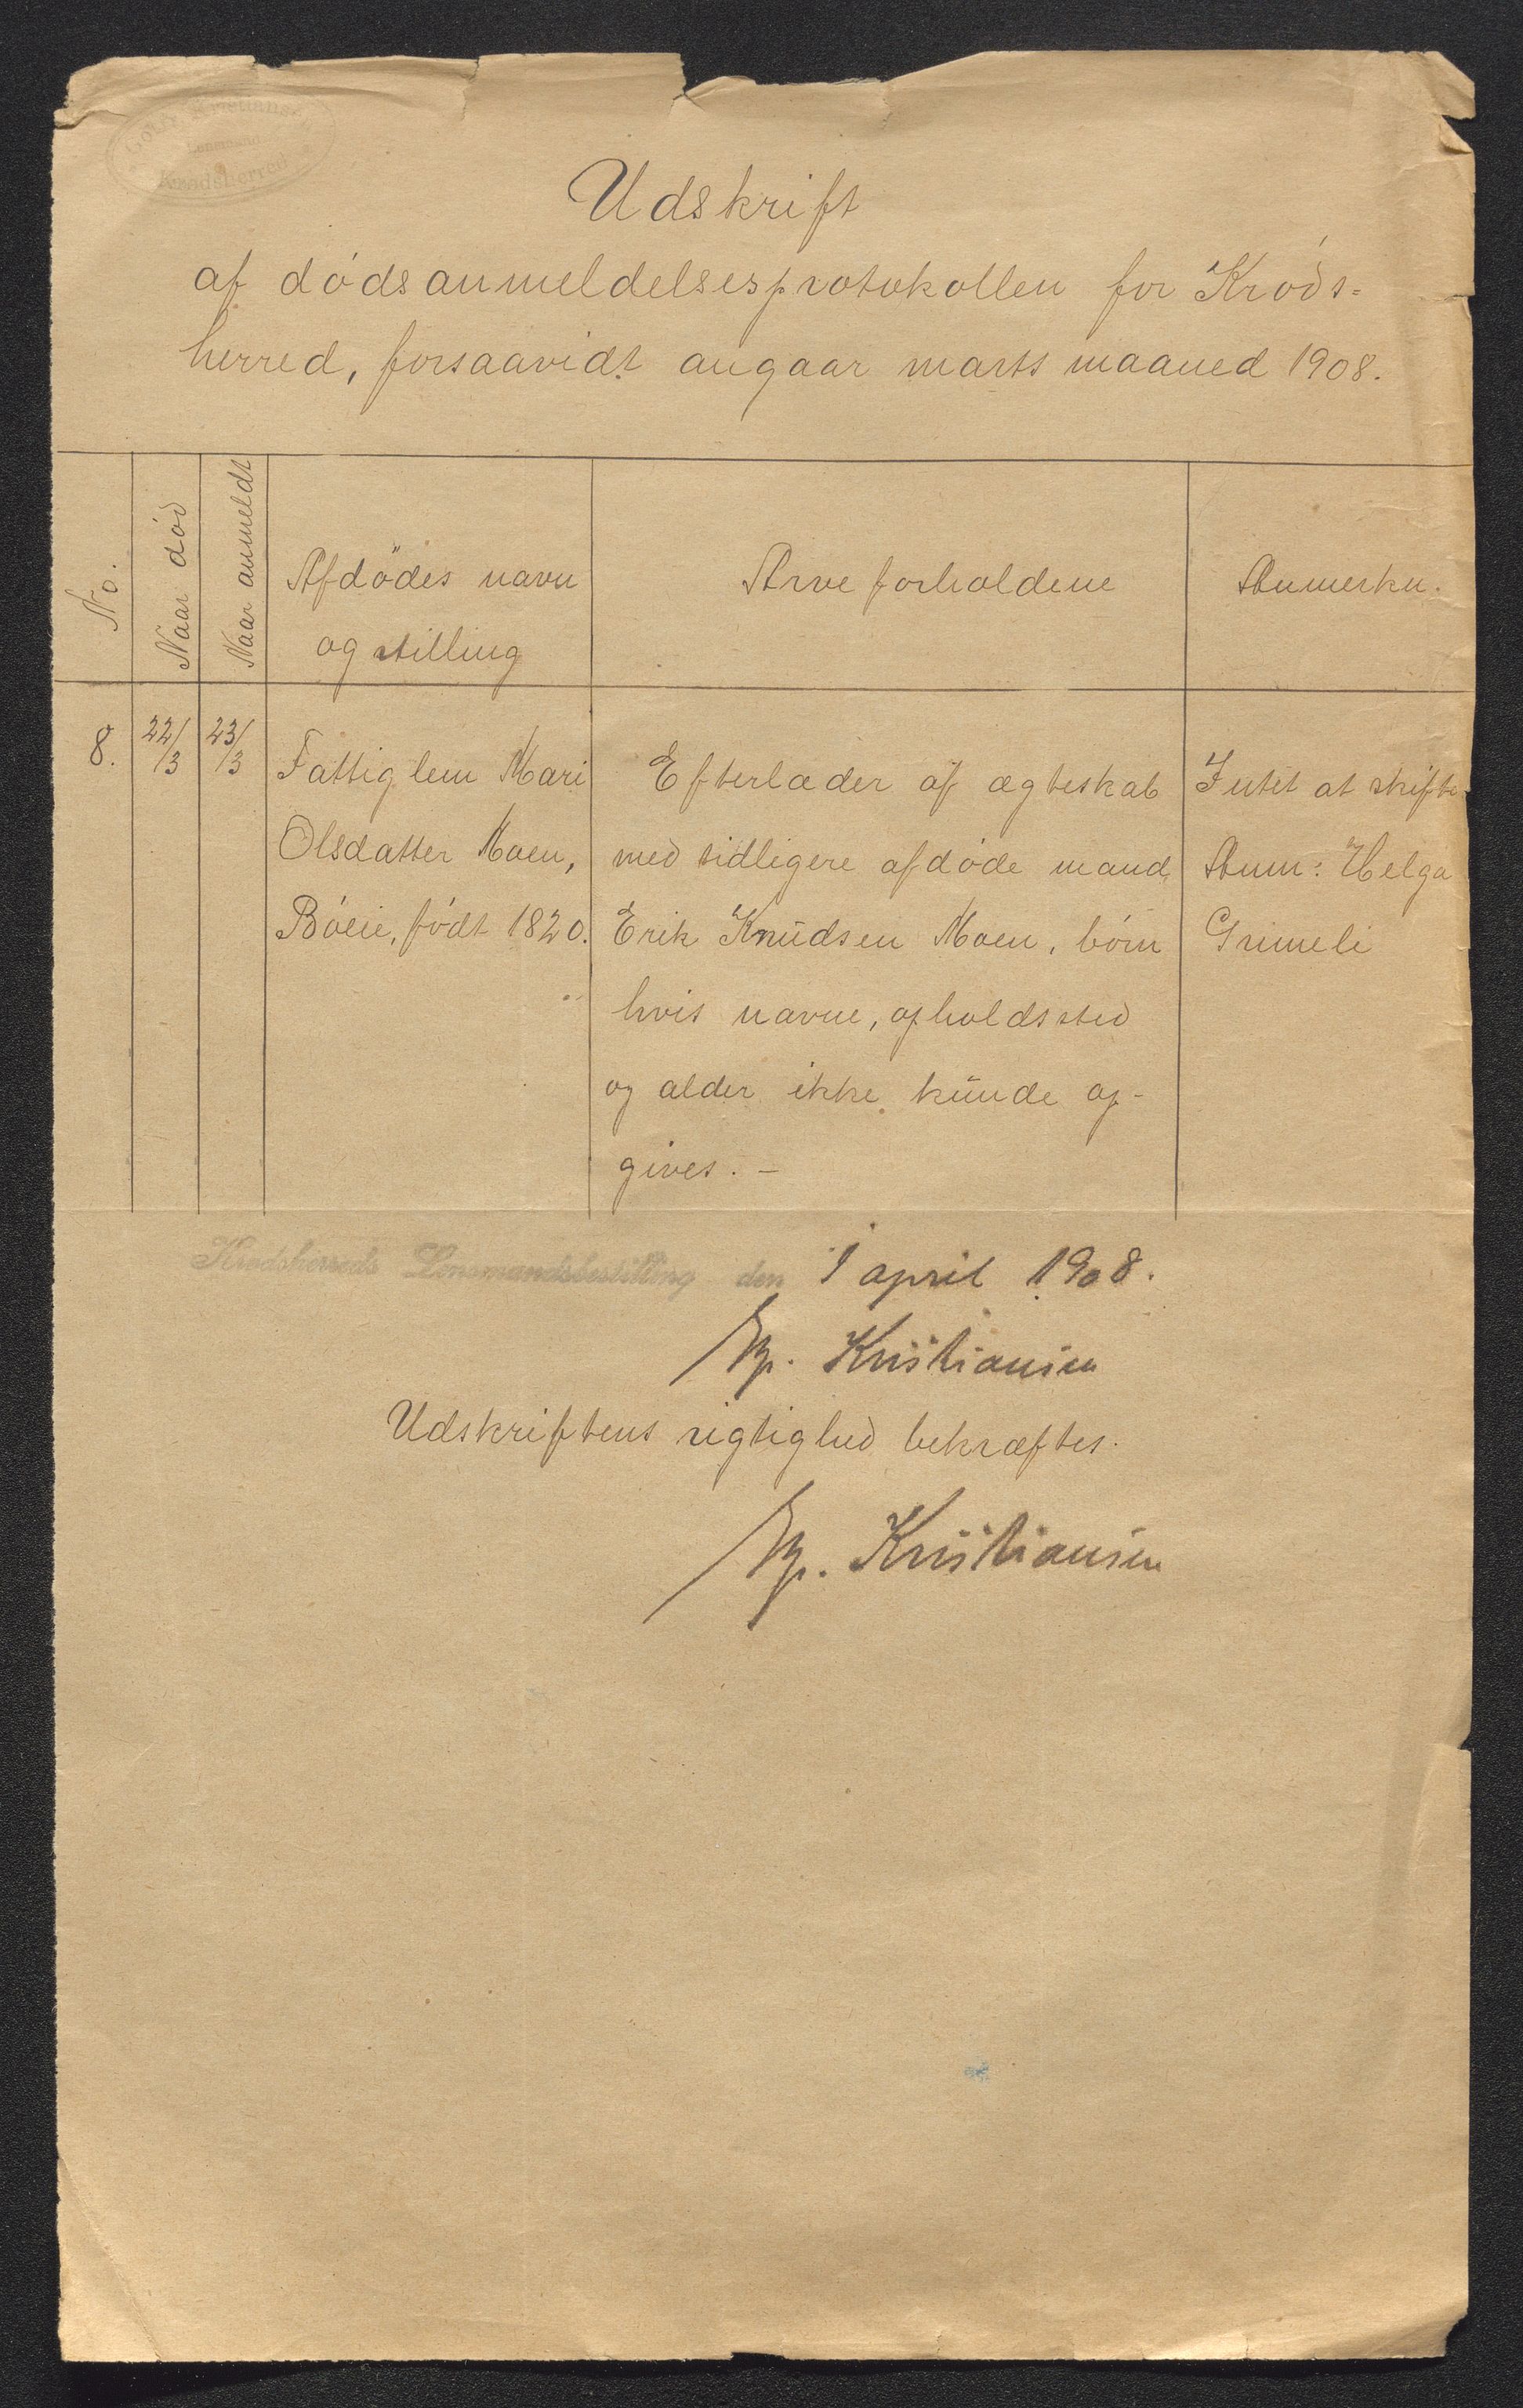 Kristiansen
Lensmand
Krødsherred
Udskrift
af dødsanmeldelsesprotokollen for Krøds-
herred, forsaavidt angaar marts maaned 1908.
No.
Naar død
Naar anmeldt
Afdødes navn
og stilling
Arveforholdene
Anmerkn.
8.
22/3
23/3
Fattiglem Mari
Olsdatter Moen,
Bøeie, født 1820.
Efterlader af ægteskab
med tidligere afdøde mand
Erik Knudsen Moen, børn
hvis navne, opholdssted
og alder ikke kunde op-
gives. –
Intet at skifte
Anm: Helga
Grimeli
Krødsherreds Lensmandsbestilling den 1 april 1908.
Kristiansen
Udskriftens rigtighed bekræftes.
Kristiansen